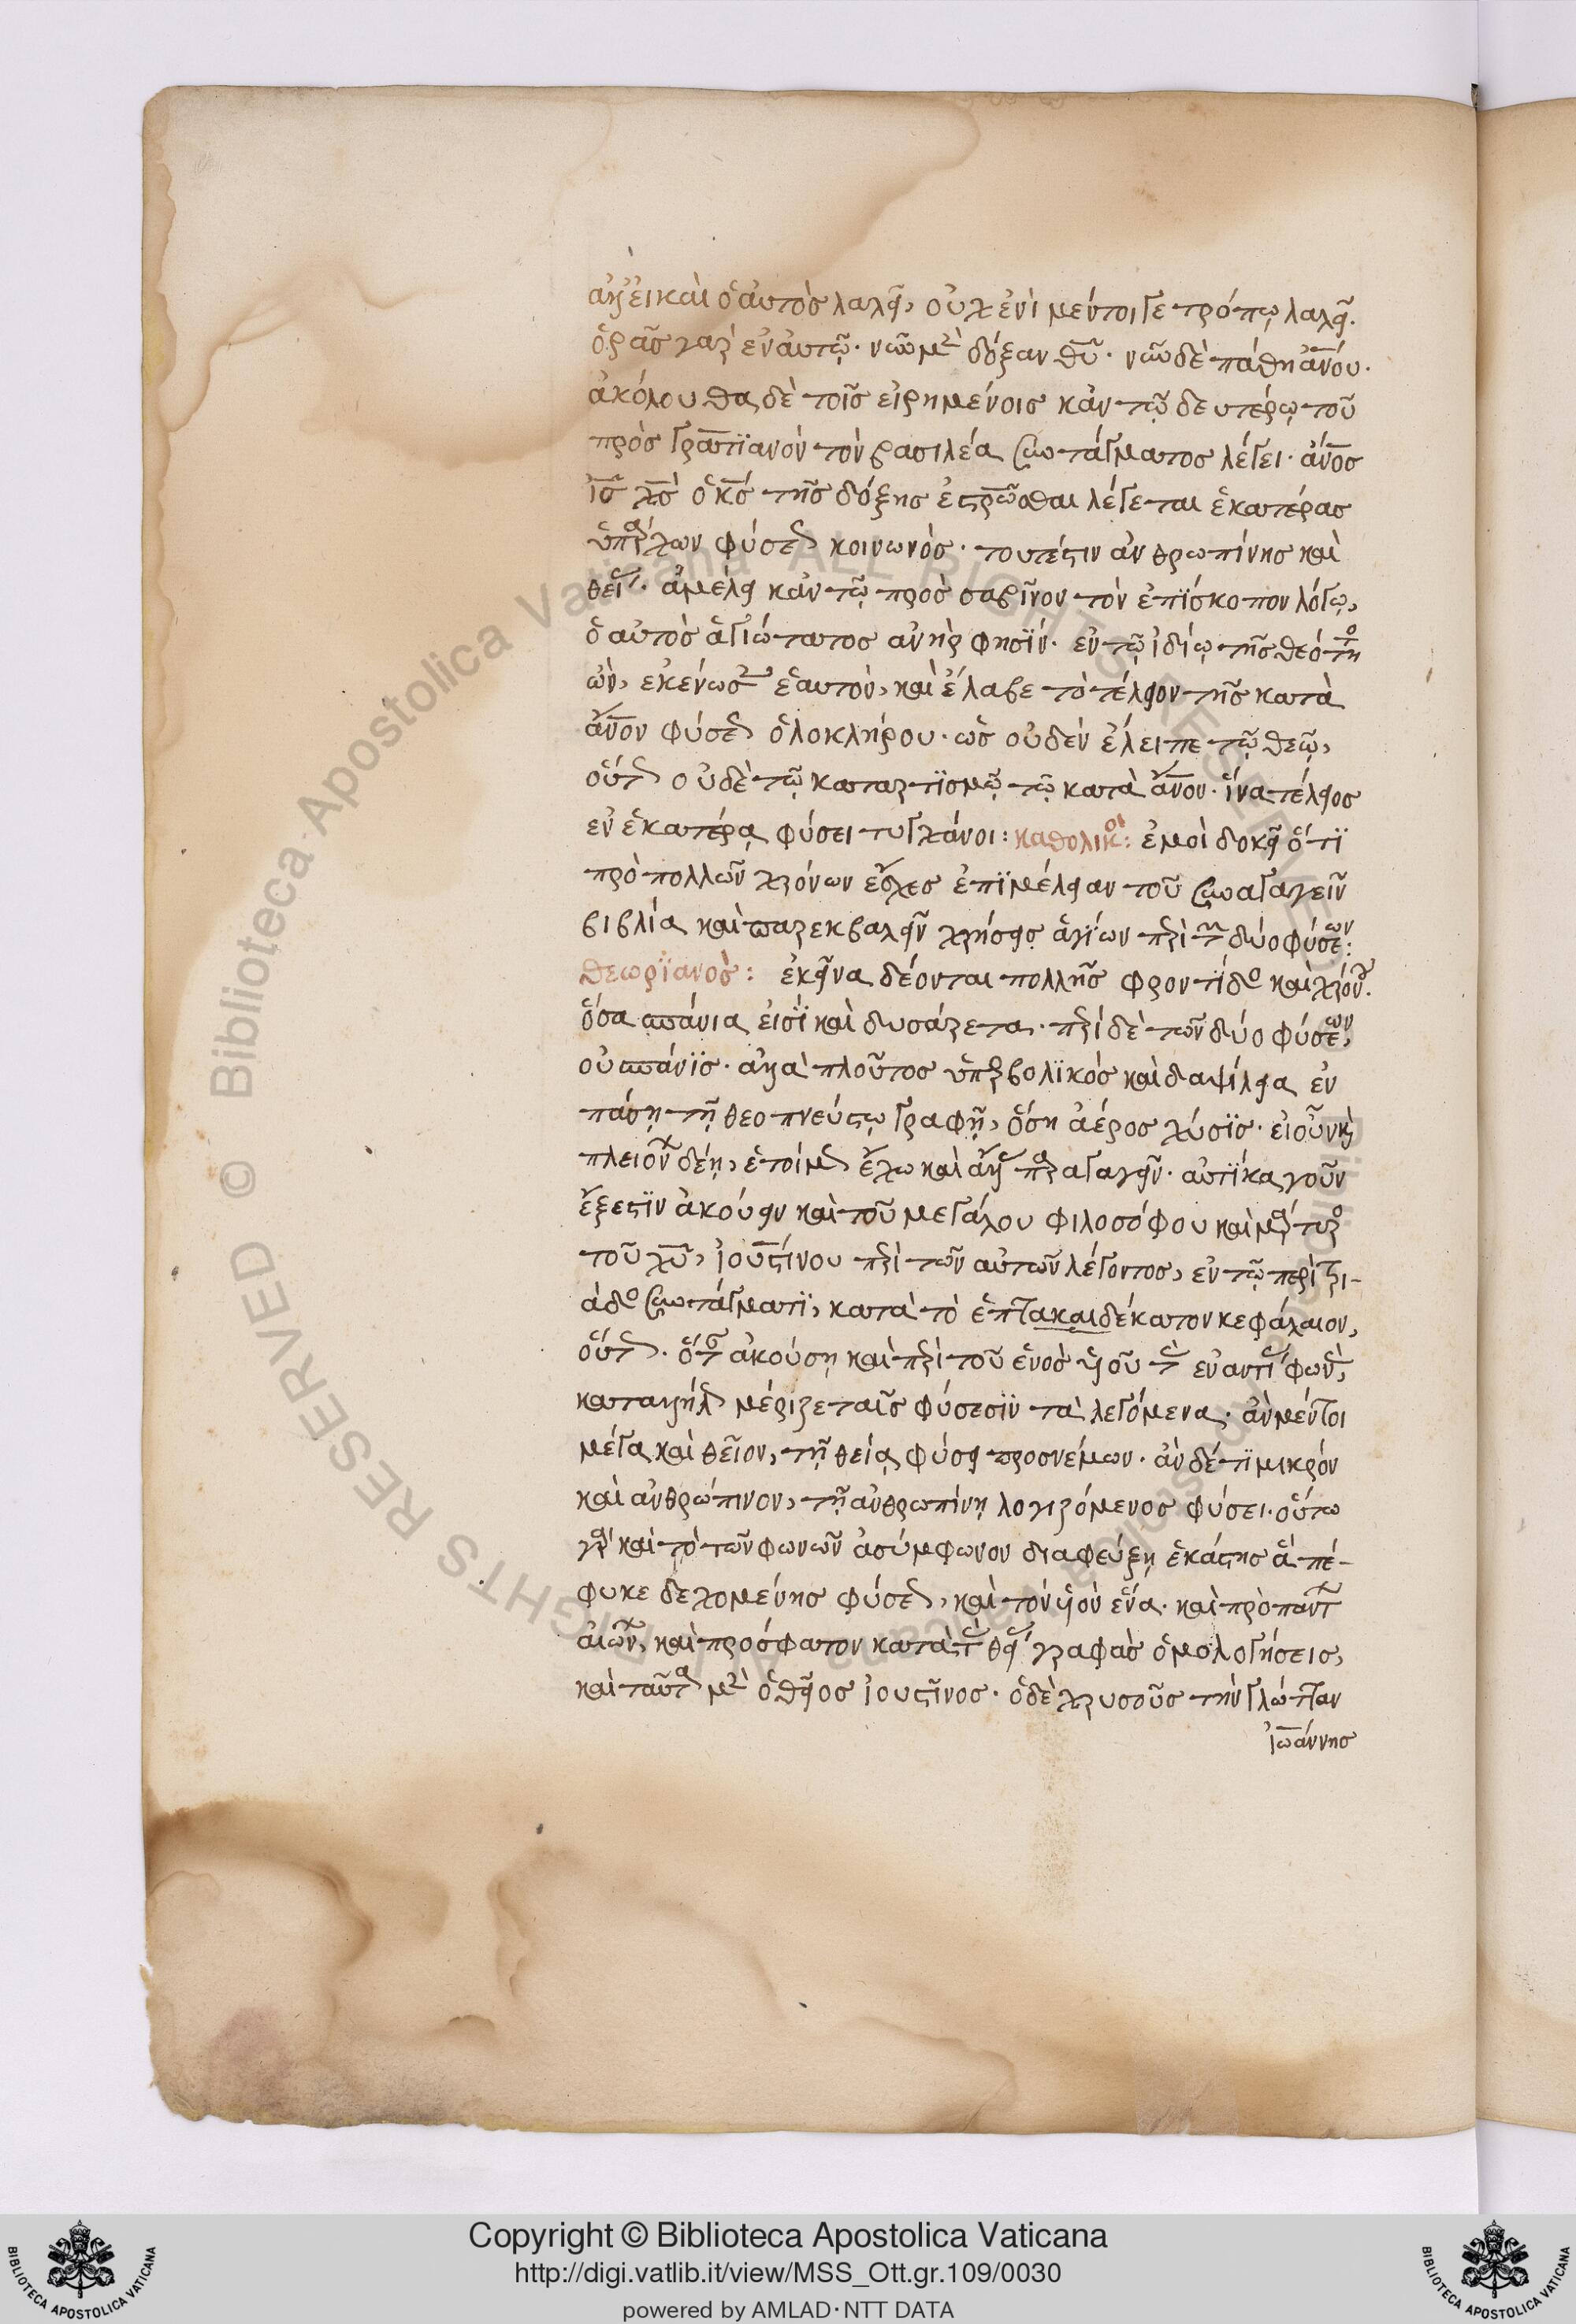 ἀλλ' εἰ καὶ ὁ αὐτὸς λαλεῖ, οὐχ ἑνὶ μέντοιγε τρόπῳ λαλεῖ.
ὁρᾷς γὰρ ἐν αὐτῷ· νῦν μὲν δόξαν θῦ· νῦν δὲ πάθη ἀνόυ·
ἀκόλουθα δὲ τοῖς εἰρημένοις κἀν τῷ δευτέρῳ τοῦ
πρὸς Γρατιανὸν τὸν βασιλέα συντάγματος λέγει· ἄνος
ἰς χς ὁ κς τῆς δόξης ἐστρῶσθαι λέγεται ἑκατέρας
ὑπάρχων φύσεως κοινωνός· τουτέστιν ἀνθρωπίνης καὶ
θείας· ἀμέλει κἀν τῷ πρὸς σαβῖνον τὸν ἐπίσκοπον λόγῳ,
ὁ αὐτὸς ἁγιώτατος ἀνὴρ φησίν· ἐν τῷ ἰδίῳ τῆς θεότητος
ὢν, ἐκένωσεν ἑαυτὸν, καὶ ἔλαβε τὸ τέλειον τῆς κατὰ
ἄνον φύσεως ὁλοκλήρου· ὡς οὐδὲν ἔλειπε τῷ θεῷ,
οὕτως οὐδὲ τῷ καταρτισμῷ τῷ κατὰ ἄνον· ἵνα τέλειος
ἐν ἑκατέρᾳ φύσει τυγχάνοι: καθολικός: ἐμοὶ δοκεῖ ὅτι
πρὸ πολλῶν χρόνων ἔσχες ἐπιμέλειαν τοῦ συναγαγεῖν
βιβλία καὶ παρεκβαλεῖν χρήσεις ἁγίων περὶ τῶν δύο φύσεων:
θεωριανός: ἐκεῖνα δέονται πολλῆς φροντίδος καὶ χρόνου.
ὅσα σπάνια εἰσὶ καὶ δυσεύρετα. περὶ δὲ τῶν δύο φύσεων,
οὐ σπάνις· ἀλλὰ πλοῦτος ὑπερβολικὸς καὶ δαψίλεια ἐν
πάσῃ τῇ θεοπνεύστῳ γραφῇ, ὅση ἀέρος χύσις· εἰ οὖν καὶ
πλειόνων δέῃ, ἑτοίμως ἔχω καὶ ἄλλας παραγαγεῖν. αὐτίκα γοῦν
ἔξεστιν ἀκούειν καὶ τοῦ μεγάλου φιλοσόφου καὶ μάρτυρος
τοῦ χῦ, ἰουστίνου περὶ τῶν αὐτῶν λέγοντος, ἐν τῷ περὶ τρι-
άδος συντάγματι, κατὰ τὸ ἑπτακαιδέκατον κεφάλαιον,
οὕτως. ὅταν ἀκούσῃ καὶ περὶ τοῦ ἑνὸς υἱοῦ τὰς ἐναντίας φωνὰς,
καταλλήλως μέριζε ταῖς φύσεσιν τὰ λεγόμενα. ἂν μέντοι
μέγα καὶ θεῖον, τῇ θείᾳ φύσει προσνέμων· ἂν δέ τι μικρὸν
καὶ ἀνθρώπινον, τῇ ἀνθρωπίνῃ λογιζόμενος φύσει. οὕτω
γὰρ καὶ τὸ τῶν φωνῶν ἀσύμφωνον διαφεύξῃ ἑκάστης ἃ πέ-
φυκε δεχομένης φύσεως, καὶ τὸν υἱὸν ἕνα· καὶ πρὸ πάντων
αἰώνων, καὶ πρόσφατον κατὰ τὰς θείας γραφὰς ὁμολογήσεις,
καὶ ταῦτα μὲν ὁ θεῖος ἰουστῖνος· ὁ δὲ χρυσοῦς τὴν γλῶτταν
ἰωάννης
Copyright © Biblioteca Apostolica Vaticana
http://digi.vatlib.it/view/MSS_Ott.gr.109/0030
powered by AMLAD·NTT DATA